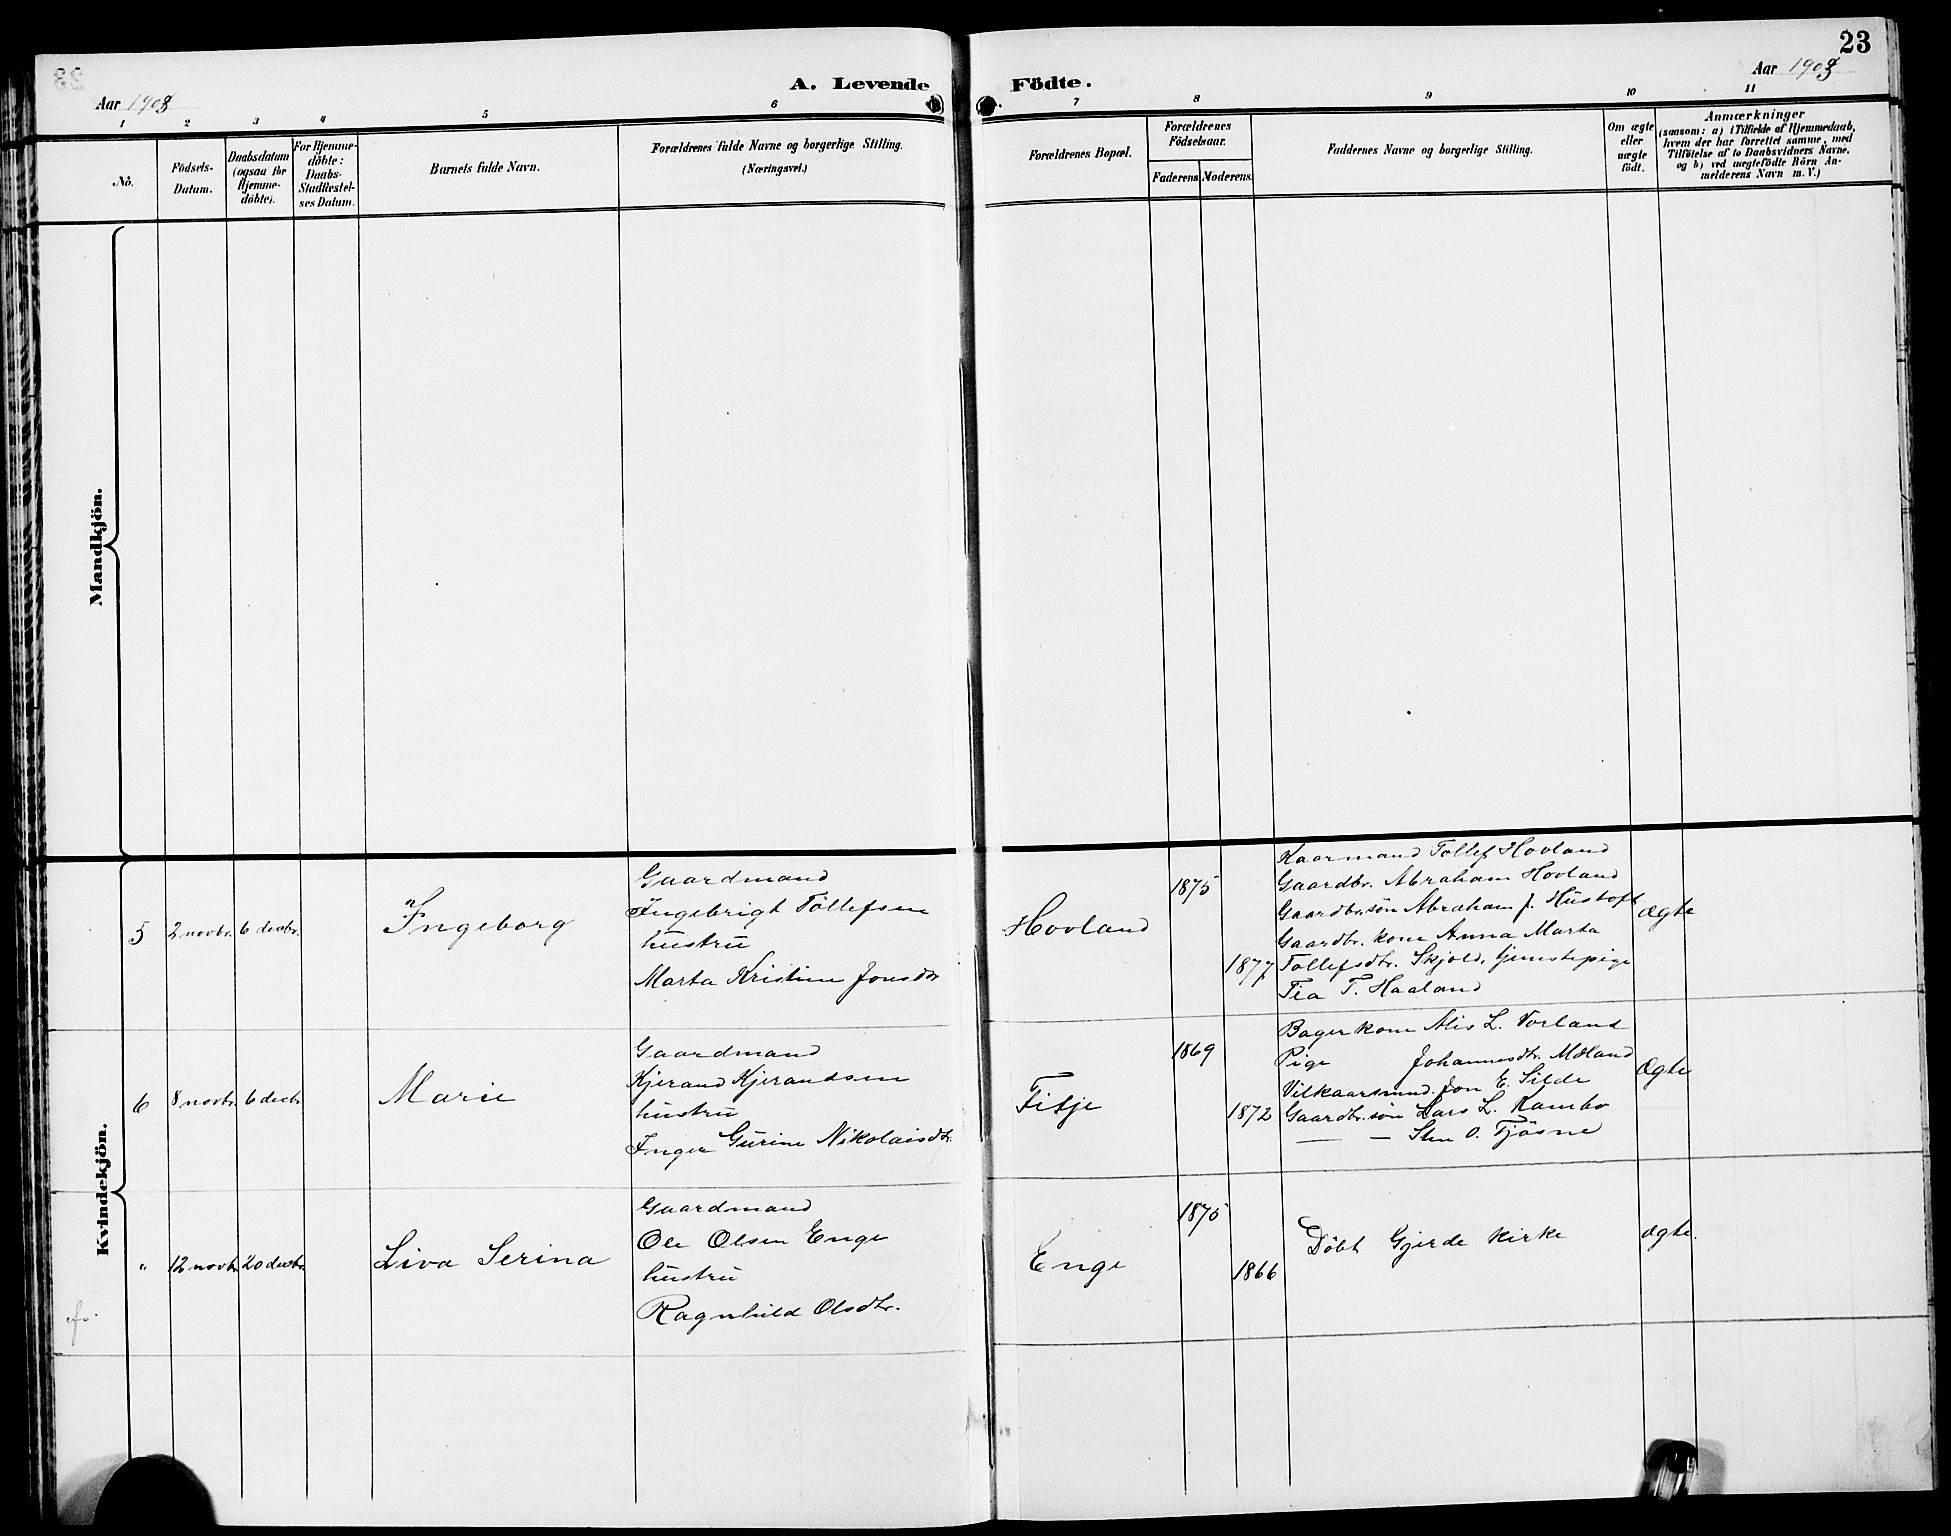 23
A. Levende Födte.
Aar 1903
Aar 1903
1 2 3 4 5 6 7 8 9 10 11
No.
Födsels-Datum.
Daabsdatum (ogsaa for Hjemme-döbte).
For Hjemme-döbte: Daabs-Stadfæstel-ses Datum.
Barnets fulde Navn.
Forældrenes fulde Navne og borgerlige Stilling.
(Næringsvei.)
Forældrenes Bopæl.
Forældrenes Födselsaar.
Faderens Moderens.
Faddernes Navne og borgerlige Stilling.
Om ægte eller uægte födt.
Anmærkninger
(saasom: a) i Tilfælde af Hjemmedaab,
hvem der har forrettet samme, med
Tilföielse af to Daabsvidners Navne.
og b) ved uægtefödte Börn An-
melderens Navn m. V.)
Mandkjön.
Kvindekjön.
5 2 novbr. 6 decbr. Ingeborg
Gaardmand
Ingebrigt Tollefsen
hustru
Marta Kristine Jonsdtr
Hovland
1875
1877
Kaarmand Tollef Hovland
Gaardbr. Abraham Hovland
Gaardbr.søn Abraham J. Hustoft
Gaardbr. kone Anna Marta
Tollefsdtr. Skjold, tjenestepige
Tea T. Haaland
Ægte
6 8 novbr. 6 decbr. Marie
Gaardmand
Kjerand Kjerandsen
hustru
Inger Gurine Nikolaisdtr.
Fitje
1869
1872
Bagerkone Alis L. Vorland
Pige Johannesdtr. Mæland
Vilkaarsmand Jon E. Silde
Gaardbr.søn Lars L. Kambo
— — Sten O. Tjøsne
Ægte
" 12 novbr. 20 decbr. Liva Serina
Gaardmand
Ole Olsen Enge
hustru
Ragnhild Olsdtr.
Enge
1875
1866
Døbt Gjerde kirke
ægte.